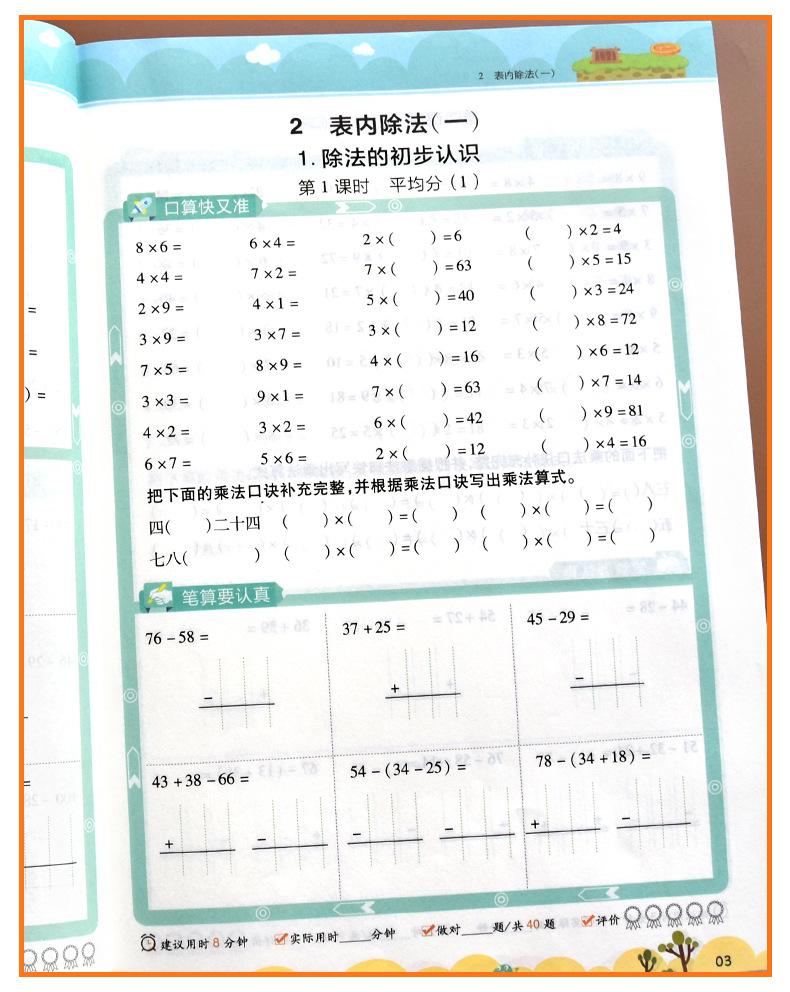 2 表内除法(一)
2 表内除法(一)
1. 除法的初步认识
第 1 课时 平均分(1)
口算快又准
8×6= 6×4= 2×( )=6 ( )×2=4
4×4= 7×2= 7×( )=63 ( )×5=15
2×9= 4×1= 5×( )=40 ( )×3=24
3×9= 3×7= 3×( )=12 ( )×8=72
7×5= 8×9= 4×( )=16 ( )×6=12
3×3= 9×1= 7×( )=63 ( )×7=14
4×2= 3×2= 6×( )=42 ( )×9=81
6×7= 5×6= 2×( )=12 ( )×4=16
把下面的乘法口诀补充完整,并根据乘法口诀写出乘法算式。
四( )二十四 ( )×( )=( ) ( )×( )=( )
七八( ) ( )×( )=( ) ( )×( )=( )
笔算要认真
76-58= 37+25= 45-29=
- + -
43+38-66= 54-(34-25)= 78-(34+18)=
+ - - - + -
建议用时 8 分钟 实际用时____分钟 做对____题/共 40 题 评价
03
=
=
)=